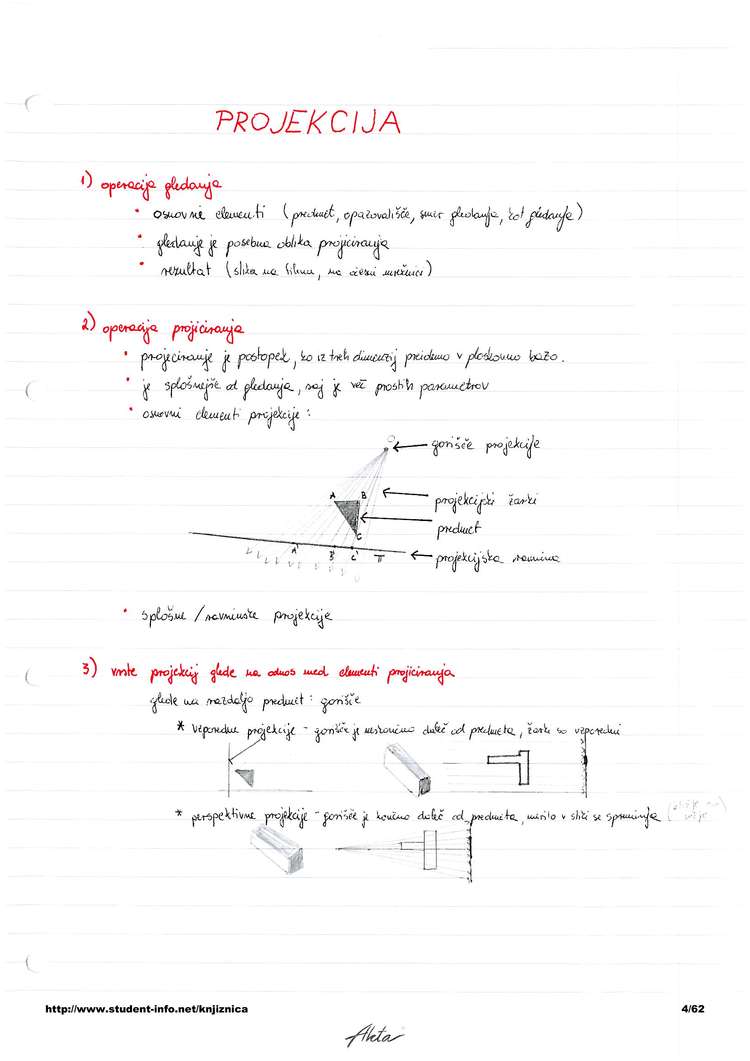 PROJEKCIJA
1) operacija gledanja
• osnovni elementi (predmet, opazovališče, smer gledanja, kot gledanja)
• gledanje je posebna oblika projiciranja
• rezultat (slika na filmu, na očesni mrežnici)
2) operacija projiciranja
• projeciranje je postopek, ko iz treh dimenzij preidemo v ploskovno bazo.
• je splošnejše od gledanja, saj je več prostih parametrov
• osnovni elementi projekcije:
O
gorišče projekcije
A B
projekcijski žarki
predmet
C
A' B' C' π
projekcijska ravnina
• splošne / ravninske projekcije
3) vrste projekcij glede na odnos med elementi projiciranja
glede na razdaljo predmet : gorišče
* vzporedne projekcije - gorišče je neskončno daleč od predmeta, žarki so vzporedni
* perspektivne projekcije - gorišče je končno daleč od predmeta, merilo v sliki se spreminja
http://www.student-info.net/knjiznica
4/62